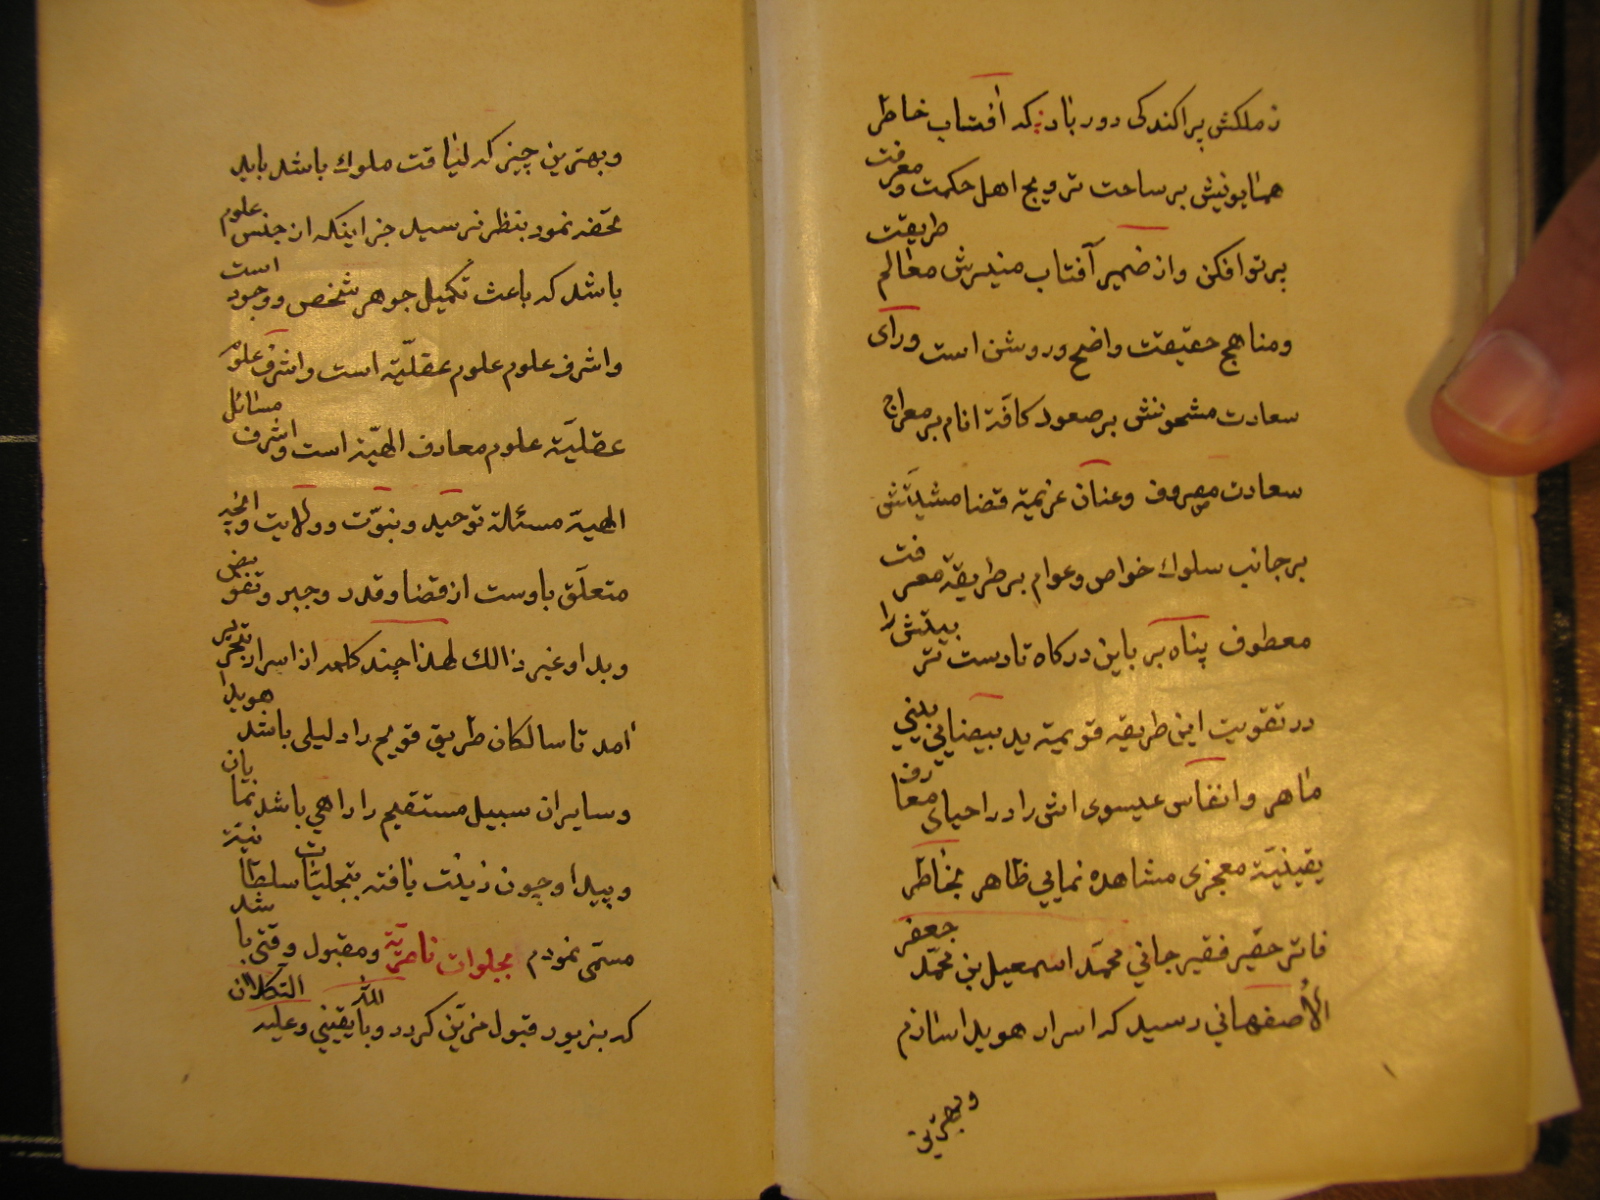 ز ملکش پراکندکی دور باد که افتاب خاطر
همایونیش بر ساحت ترویج اهل حکمت و معرفت
پرتو افکن و از ضمیر آفتاب منیرش معالم طریقت
و مناهج حقیقت واضح و روشن است و رای
سعادت مشحونش بر صعود کافّة انام بر معراج
سعادت مصروف و عنان عزیمة قضا مشیتش
بر جانب سلوك خواص و عوام بر طریقهٔ معرفت
معطوف پناه بر باین درکاه تا دست تربیتش را
در تقویت این طریقه قویمة ید بیضایی بینی
ماهر و انفاس عیسوی اش را در احیای معارف
یقینیّة معجزی مشاهده نمایی ظاهر بخاطر
فاتر حقیر فقیر جانی محمّد اسمعیل بن محمّد جعفر
الاصفهانی رسید که اسرار هویدا سازم
وبهترین
وبهترین چیز که لیاقت ملوك باشد باید
تحفه نمود بنظر نرسید جز اینکه از جنس علوم
باشد که باعث تکمیل جوهر شخص و وجود است
و اشرف علوم علوم عقلیّة است و اشرف علوم
عقلیّة علوم معارف الهیّة است و اشرف مسائل
الهیة مسئلة توحید و نبوّت و ولایت و آنچه
متعلّق باوست از قضا و قدر و جبر و تفویض
و بدا و غیر ذالك لهذا چند کلمه از اسرار بتحریر
امد تا سالکان طریق قویم را دلیلی باشد هویدا
و سایران سبیل مستقیم را راهی باشد نمایان
و پیدا و چون زینت یافته بتجلیّات سلطانیّة
مسمّی نمودم مجلوات ناصریّة و مقبول وقتی باشد
که بزیور قبول مزیّن کردد و بالله یقینی و علیه التکلان